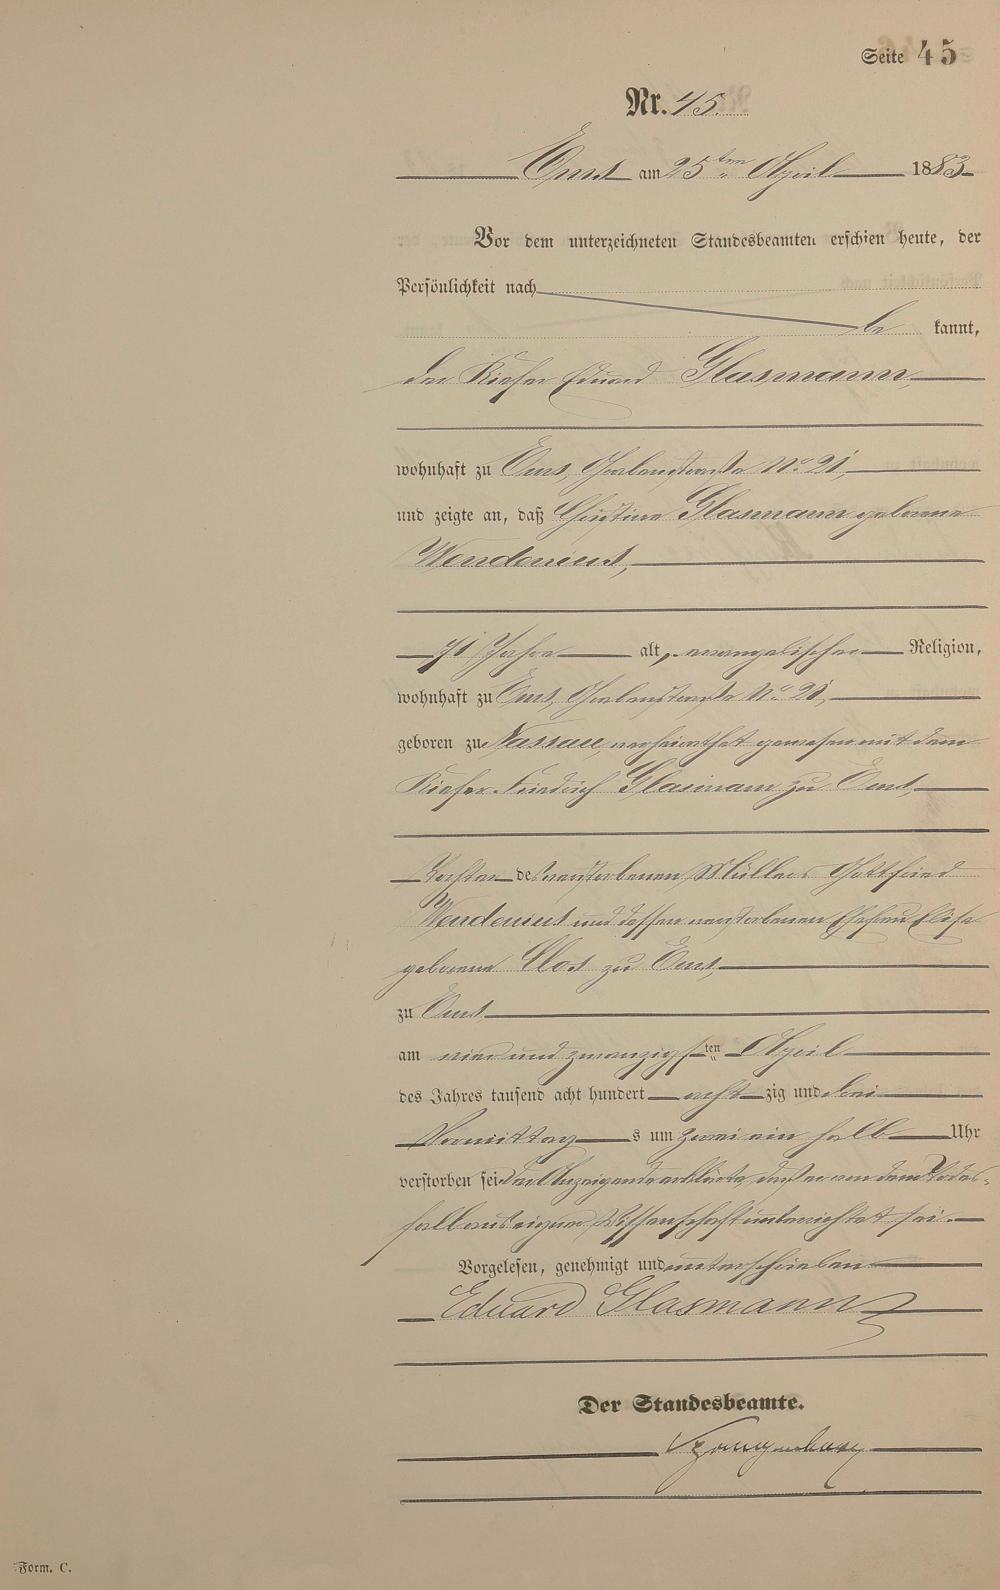 Seite 45
Nr. 45.
Ems am 25ten April 1883
Vor dem unterzeichneten Standesbeamten erschien heute, der
Persönlichkeit nach
be kannt,
der Küfer Eduard Glasmann,
wohnhaft zu Ems, No 21,
und zeigte an, daß Christine Glasmann geborene
Wendenius,
71 Jahre alt, evangelischer Religion,
wohnhaft zu Ems, No 21,
geboren zu Nassau, verheirathet gewesen mit dem
Küfer Friedrich Glasmann zu Ems,
Tochter des verstorbenen Müllers Gottfried
Wendenius und dessen verstorbenen Ehefrau Elise
geborene Clos zu Ems,
zu Ems
am vier und zwanzigsten April
des Jahres tausend acht hundert acht zig und drei
Vormittag s um zwei ein halb Uhr
verstorben sei. Der Anzeigende erklärte, daß er von dem Todes-
fall aus eigner Wissenschaft unterrichtet sei.
Vorgelesen, genehmigt und unterschrieben
Eduard Glasmann
Der Standesbeamte.
Form. C.